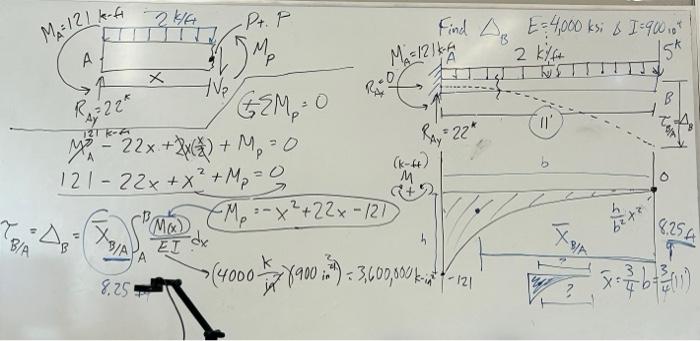 M_A=121 k-ft
2 k/ft
Pt. P
M_P
A
x
V_P
R_Ay=22ᵏ
(+ΣM_P = 0
121 k-ft
M_A - 22x + 2x(x/2) + M_P = 0
121 - 22x + x² + M_P = 0
M_P = -x² + 22x - 121
τ_B/A = Δ_B = X̄_B/A ∫_A^B M(x)/EI dx
8.25
(4000 k/in²)(900 in⁴) = 3,600,000 k-in²
Find Δ_B E=4,000 ksi & I=900 in⁴
M_A=121 k-ft
A
2 k/ft
5ᵏ
R_Ax=0
B
τ_B/A=Δ_B
R_Ay=22ᵏ
11'
(k-ft)
M
(+)
b
0
h
h/b² x²
X̄_B/A
8.25 ft
-121
?
?
x̄=3/4 b=3/4(11')